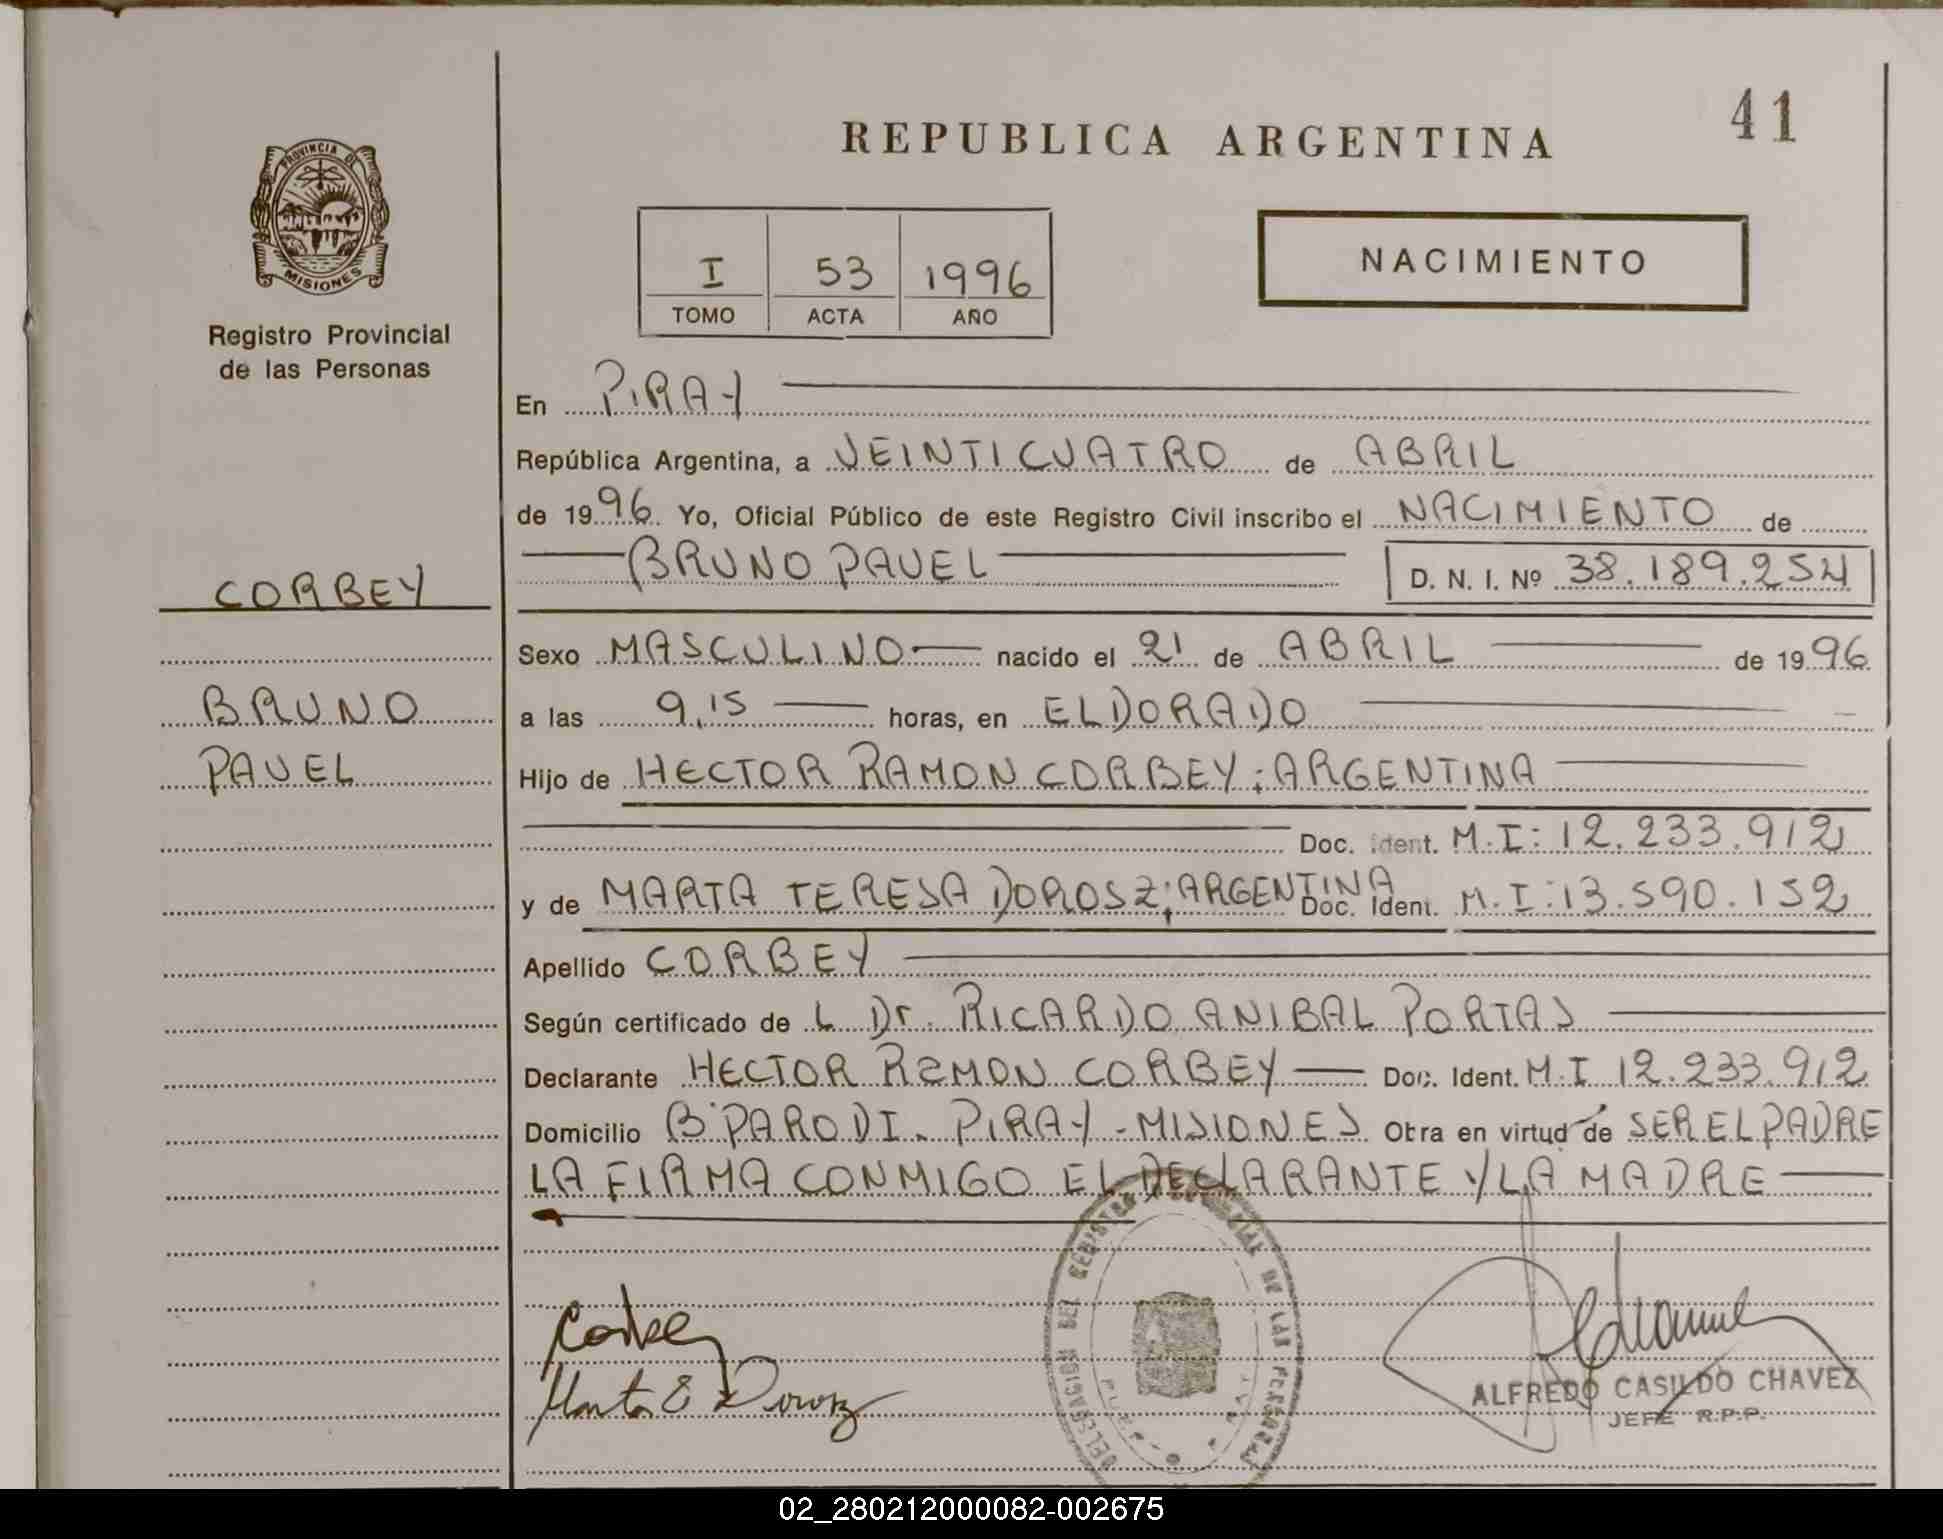 41
REPUBLICA ARGENTINA
PROVINCIA DE
MISIONES
Registro Provincial
de las Personas
I 53 1996
TOMO ACTA AÑO
NACIMIENTO
En PIRAY
República Argentina, a VEINTICUATRO de ABRIL
de 1996. Yo, Oficial Público de este Registro Civil inscribo el NACIMIENTO de
BRUNO PAVEL D. N. I. Nº 38.189.254
CORBEY
Sexo MASCULINO nacido el 21 de ABRIL de 1996
BRUNO
a las 9,15 horas, en ELDORADO
PAVEL
Hijo de HECTOR RAMON CORBEY; ARGENTINA
Doc. Ident. M.I: 12.233.912
y de MARTA TERESA DOROSZ; ARGENTINA Doc. Ident. M.I: 13.590.152
Apellido CORBEY
Según certificado de L Dr. RICARDO ANIBAL PORTAS
Declarante HECTOR RAMON CORBEY Doc. Ident. M.I 12.233.912
Domicilio Bº PARODI. PIRAY - MISIONES Obra en virtud de SER EL PADRE
LA FIRMA CONMIGO EL DECLARANTE Y LA MADRE
DELEGACION DEL REGISTRO PROVINCIAL DE LAS PERSONAS
Corbey
ALFREDO CASILDO CHAVEZ
JEFE R.P.P.
02_280212000082-002675